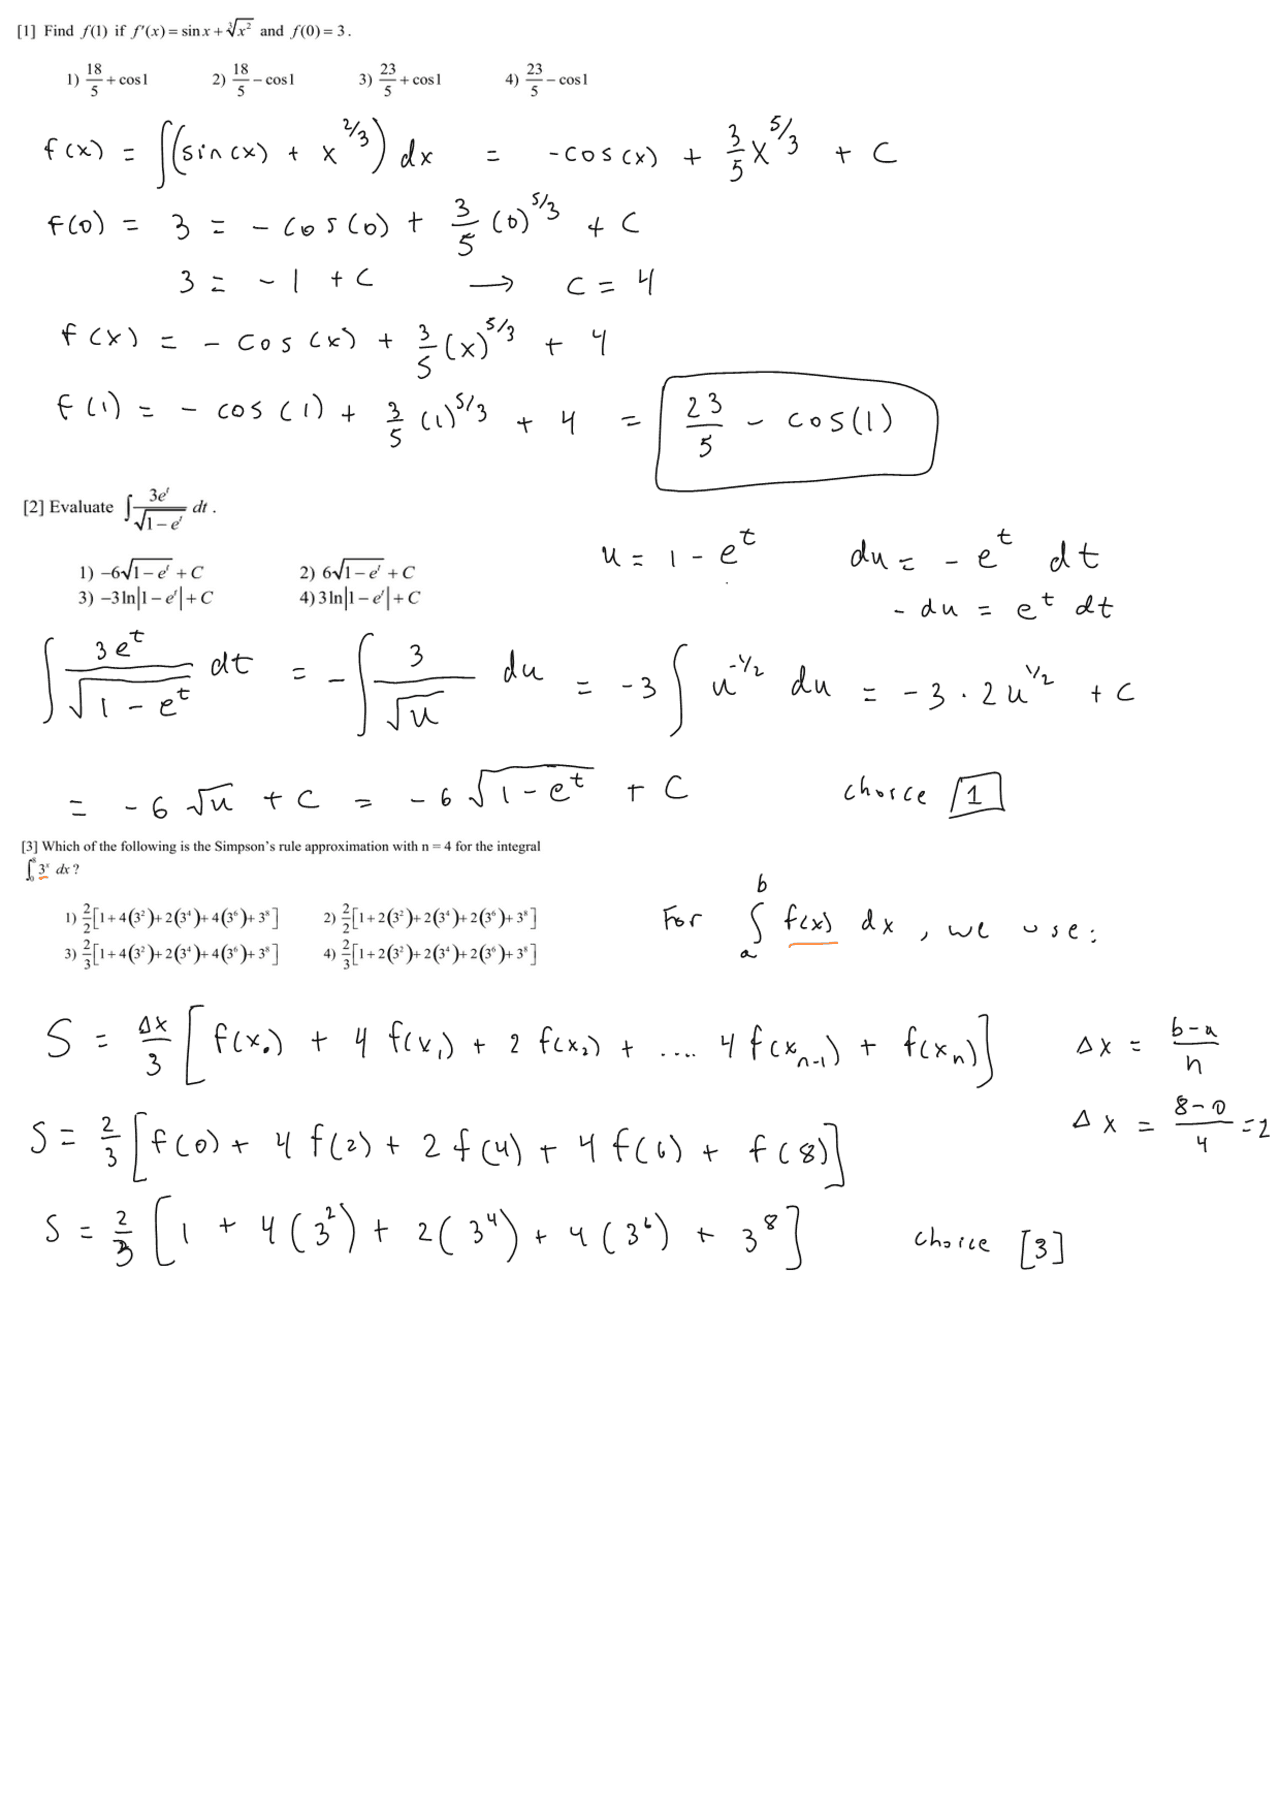 [1] Find f(1) if f'(x) = sin x + ∛x² and f(0) = 3.
1) 18/5 + cos1 2) 18/5 − cos1 3) 23/5 + cos1 4) 23/5 − cos1
f(x) = ∫(sin(x) + x^(2/3)) dx = -cos(x) + 3/5 x^(5/3) + C
f(0) = 3 = - cos(0) + 3/5 (0)^(5/3) + C
3 = -1 + C → C = 4
f(x) = - cos(x) + 3/5 (x)^(5/3) + 4
f(1) = - cos(1) + 3/5 (1)^(5/3) + 4 = 23/5 - cos(1)
[2] Evaluate ∫ 3eᵗ/√(1−eᵗ) dt .
1) −6√(1−eᵗ) + C 2) 6√(1−eᵗ) + C
3) −3ln|1−eᵗ| + C 4) 3ln|1−eᵗ| + C
u = 1 - eᵗ du = - eᵗ dt
- du = eᵗ dt
∫ 3eᵗ/√(1-eᵗ) dt = -∫ 3/√u du = -3 ∫ u^(-1/2) du = -3 · 2u^(1/2) + C
= -6√u + C = -6√(1-eᵗ) + C choice 1
[3] Which of the following is the Simpson's rule approximation with n = 4 for the integral
∫₀⁸ 3ˣ dx ?
1) 2/2[1+4(3²)+2(3⁴)+4(3⁶)+3⁸] 2) 2/2[1+2(3²)+2(3⁴)+2(3⁶)+3⁸]
3) 2/3[1+4(3²)+2(3⁴)+4(3⁶)+3⁸] 4) 2/3[1+2(3²)+2(3⁴)+2(3⁶)+3⁸]
For ∫ₐᵇ f(x) dx , we use:
S = Δx/3 [f(x₀) + 4 f(x₁) + 2 f(x₂) + .... 4 f(xₙ₋₁) + f(xₙ)] Δx = (b-a)/n
S = 2/3 [f(0) + 4 f(2) + 2 f(4) + 4 f(6) + f(8)] Δx = (8-0)/4 = 2
S = 2/3 [1 + 4(3²) + 2(3⁴) + 4(3⁶) + 3⁸] choice [3]